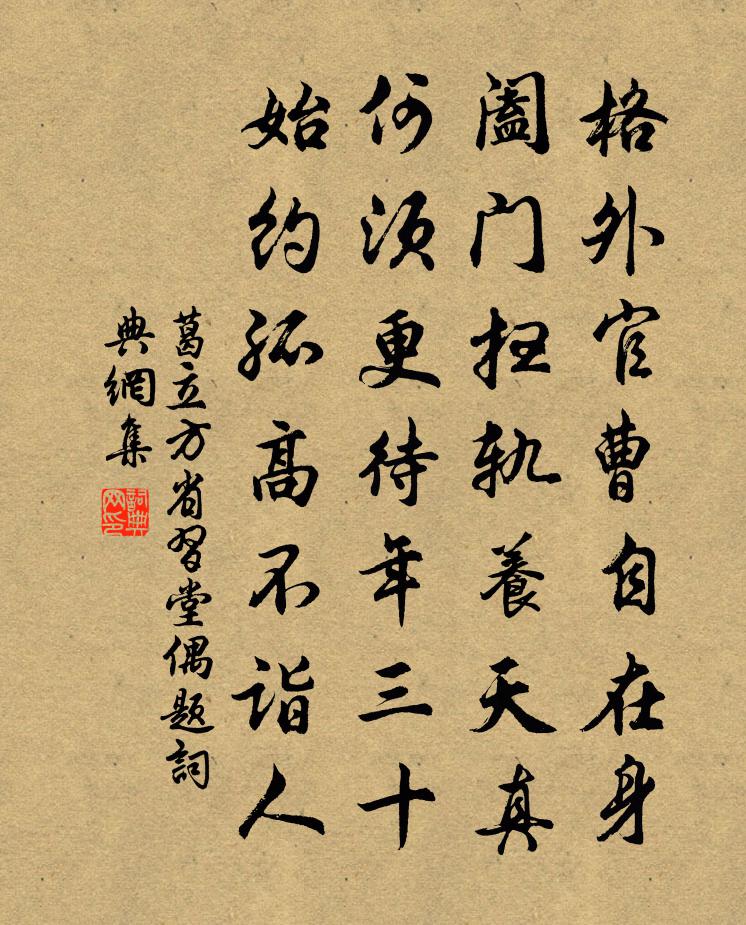 格外官曹自在身
阖门扫轨養天真
何须更待年三十
始约孤高不诣人
葛立方省習堂偶题詞
典網集
詞典
网印